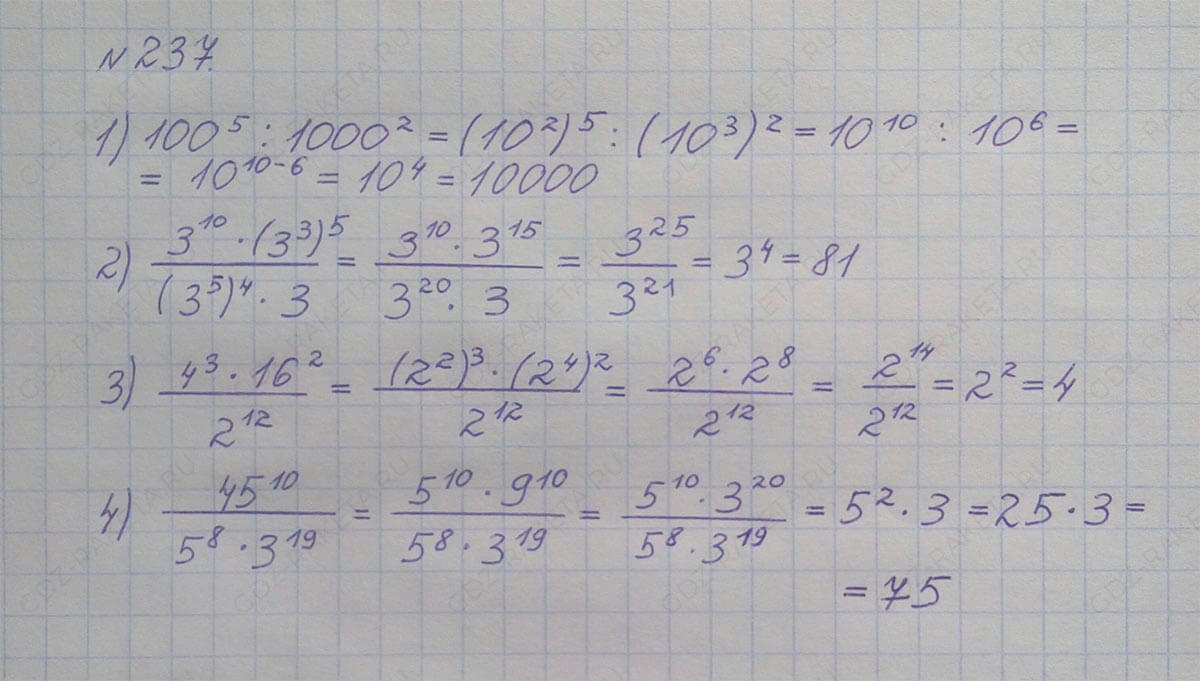 № 237.
1) 100⁵ : 1000² = (10²)⁵ : (10³)² = 10¹⁰ : 10⁶ =
= 10¹⁰⁻⁶ = 10⁴ = 10000
2) (3¹⁰ · (3³)⁵)/((3⁵)⁴ · 3) = (3¹⁰ · 3¹⁵)/(3²⁰ · 3) = 3²⁵/3²¹ = 3⁴ = 81
3) (4³ · 16²)/2¹² = ((2²)³ · (2⁴)²)/2¹² = (2⁶ · 2⁸)/2¹² = 2¹⁴/2¹² = 2² = 4
4) 45¹⁰/(5⁸ · 3¹⁹) = (5¹⁰ · 9¹⁰)/(5⁸ · 3¹⁹) = (5¹⁰ · 3²⁰)/(5⁸ · 3¹⁹) = 5² · 3 = 25 · 3 =
= 75
GDZ-RAKETA.RU